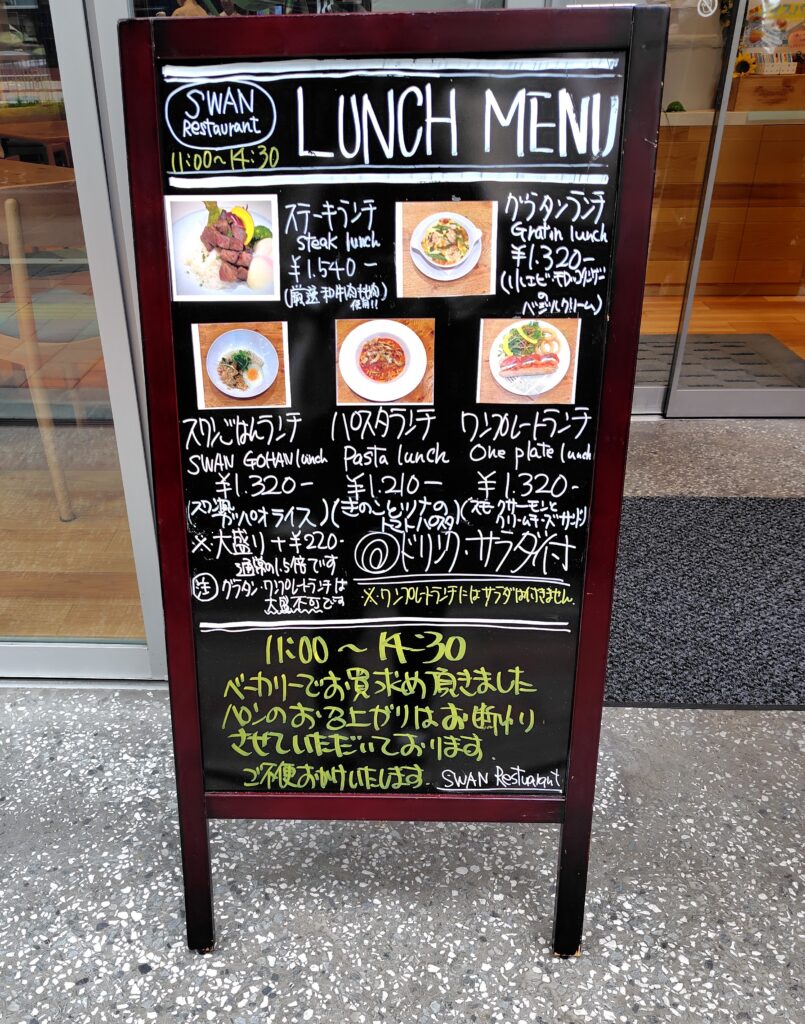 SWAN
Restaurant
11:00~14:30
LUNCH MENU
ステーキランチ
steak lunch
¥1.540-
(厳選和牛肉
使用!!)
グラタンランチ
Gratin lunch
¥1.320-
(小エビ・モッツァ
の
バジルクリーム)
スワンごはんランチ
SWAN GOHAN lunch
¥1.320-
(スワン風
ガパオライス)
※大盛り+¥220-
通常の1.5倍です
注 グラタン・ワンプレートランチは
大盛不可です
パスタランチ
Pasta lunch
¥1.210-
(きのことツナの
トマトパスタ)
ワンプレートランチ
One plate lunch
¥1.320-
(スモークサーモンと
クリームチーズサンド)
◎ドリンク・サラダ付
※ワンプレートランチにはサラダは付きません
11:00~14:30
ベーカリーでお買求め頂きました
パンのお召上がりはお断り
させていただいております
ご不便おかけいたします
SWAN Restuarant